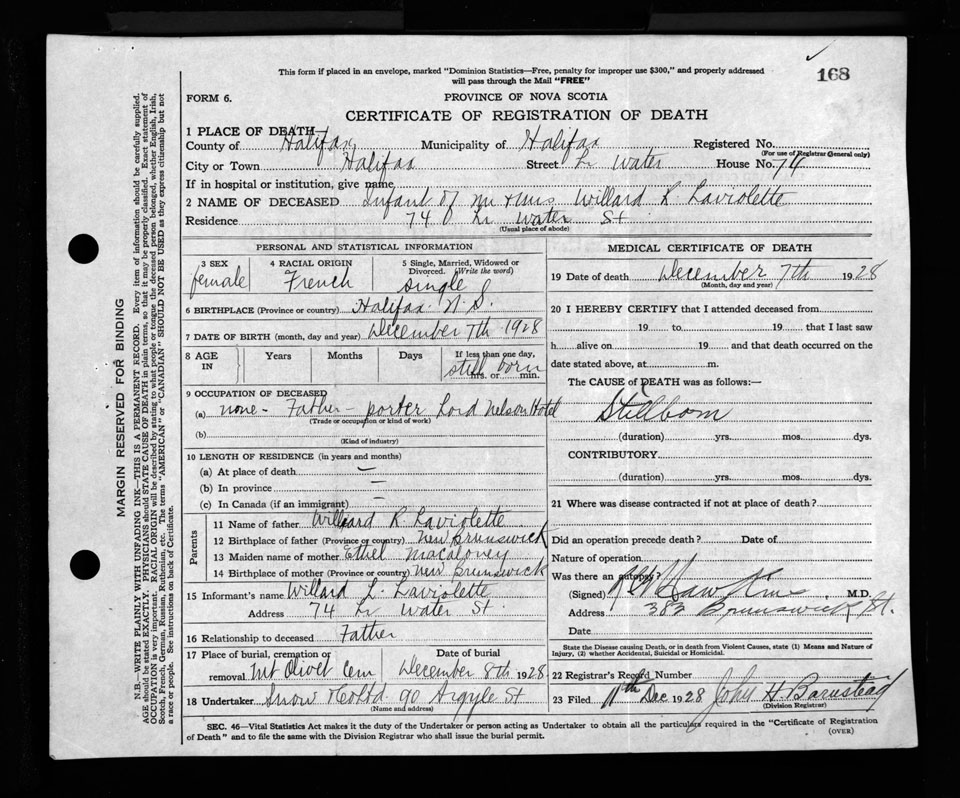 168
This form if placed in an envelope, marked "Dominion Statistics—Free, penalty for improper use $300," and properly addressed
will pass through the Mail "FREE"
FORM 6.
PROVINCE OF NOVA SCOTIA
CERTIFICATE OF REGISTRATION OF DEATH
1 PLACE OF DEATH
County of Halifax Municipality of Halifax Registered No.
(For use of Registrar General only)
City or Town Halifax Street Lr Water House No. 74
If in hospital or institution, give name
2 NAME OF DECEASED Infant of Mr & Mrs Willard L. Laviolette
Residence 74 Lr Water St
(Usual place of abode)
PERSONAL AND STATISTICAL INFORMATION
3 SEX 4 RACIAL ORIGIN 5 Single, Married, Widowed or
Divorced. (Write the word)
female French single
6 BIRTHPLACE (Province or country) Halifax N.S.
7 DATE OF BIRTH (month, day and year) December 7th 1928
8 AGE IN Years Months Days If less than one day,
hrs. or min.
still born
9 OCCUPATION OF DECEASED
(a) none - Father - porter Lord Nelson Hotel
(Trade or occupation or kind of work)
(b)
(Kind of industry)
10 LENGTH OF RESIDENCE (in years and months)
(a) At place of death —
(b) In province —
(c) In Canada (if an immigrant) —
Parents
11 Name of father Willard R. Laviolette
12 Birthplace of father (Province or country) New Brunswick
13 Maiden name of mother Ethel Macaloney
14 Birthplace of mother (Province or country) New Brunswick
15 Informant's name Willard L. Laviolette
Address 74 Lr Water St.
16 Relationship to deceased Father
17 Place of burial, cremation or Date of burial
removal. Mt Olivet Cem December 8th 1928
18 Undertaker Snow & Co Ltd. 90 Argyle St
(Name and address)
MEDICAL CERTIFICATE OF DEATH
19 Date of death December 7th 1928
(Month, day and year)
20 I HEREBY CERTIFY that I attended deceased from
19 to 19 that I last saw
h alive on 19 and that death occurred on the
date stated above, at m.
The CAUSE of DEATH was as follows:—
Stillborn
(duration) yrs. mos. dys.
CONTRIBUTORY
(duration) yrs. mos. dys.
21 Where was disease contracted if not at place of death?
Did an operation precede death? Date of
Nature of operation
Was there an autopsy?
(Signed) M.D.
Address 383 Brunswick St.
Date
State the Disease causing Death, or in death from Violent Causes, state (1) Means and Nature of
Injury, (2) whether Accidental, Suicidal or Homicidal.
22 Registrar's Record Number
23 Filed 11th Dec 1928 John H Barnstead
(Division Registrar)
SEC. 46—Vital Statistics Act makes it the duty of the Undertaker or person acting as Undertaker to obtain all the particulars required in the "Certificate of Registration
of Death" and to file the same with the Division Registrar who shall issue the burial permit.
(OVER)
MARGIN RESERVED FOR BINDING
N.B.—WRITE PLAINLY WITH UNFADING INK—THIS IS A PERMANENT RECORD. Every item of information should be carefully supplied.
AGE should be stated EXACTLY. PHYSICIANS should STATE CAUSE OF DEATH in plain terms, so that it may be properly classified. Exact statement of
OCCUPATION is very important. RACIAL ORIGIN will be described by stating to what people or tongue the deceased person belonged, whether English, Irish,
Scotch, French, German, Russian, Ruthenian, etc. The terms "AMERICAN" or "CANADIAN" SHOULD NOT BE USED as they express citizenship but not
a race or people. See instructions on back of Certificate.